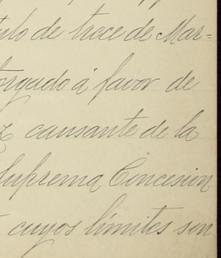 tulo de trece de Mar-
orgado á favor de
causante de la
Suprema Concesion
cuyos límites son